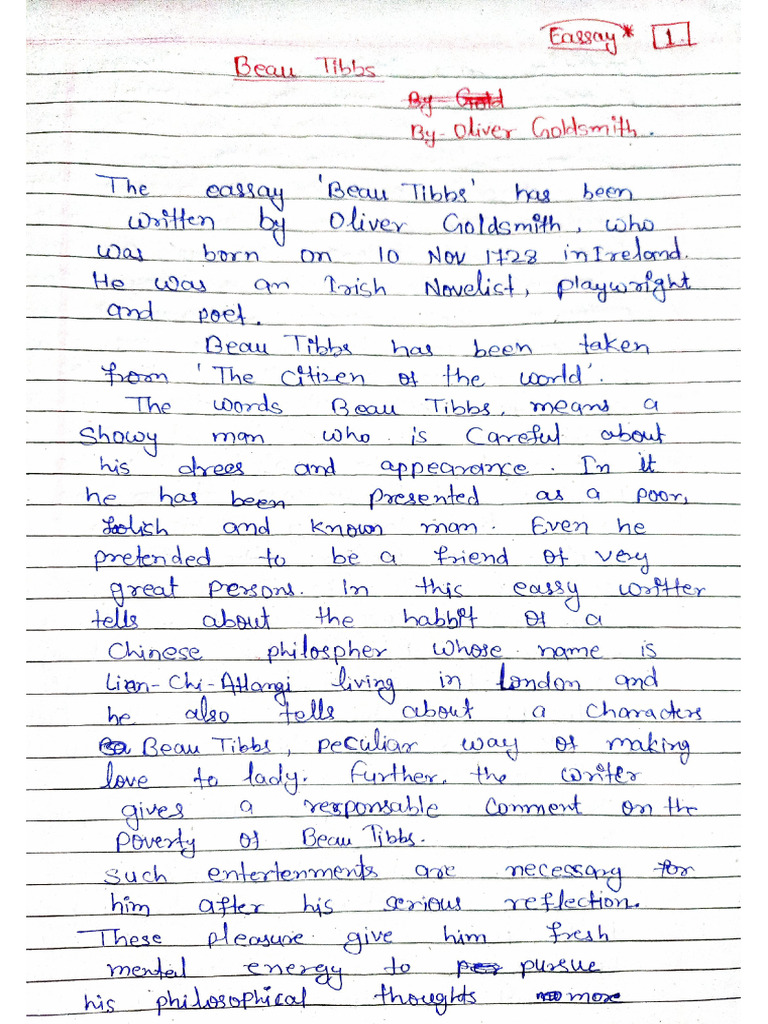 Eassay* 1.
Beau Tibbs
By Gold
By- Oliver Goldsmith.
The eassay 'Beau Tibbs' has been
written by Oliver Goldsmith, who
was born on 10 Nov 1728 in Ireland.
He was an Irish Novelist, playwright
and poet.
Beau Tibbs has been taken
from 'The Citizen of the world'.
The words Beau Tibbs, means a
showy man who is Careful about
his drees and appearance. In it
he has been presented as a poor,
foolish and known man. Even he
pretended to be a friend of very
great persons. In this eassy writter
tells about the habbit of a
Chinese philospher whose name is
Lian-Chi-Altangi living in London and
he also tells about a characters
Beau Tibbs, peculiar way of making
love to lady. Further, the writer
gives a responsable comment on the
poverty of Beau Tibbs.
Such entertenments are necessary for
him after his serious reflection.
These pleasure give him fresh
mental energy to pursue
his philosophical thoughts more